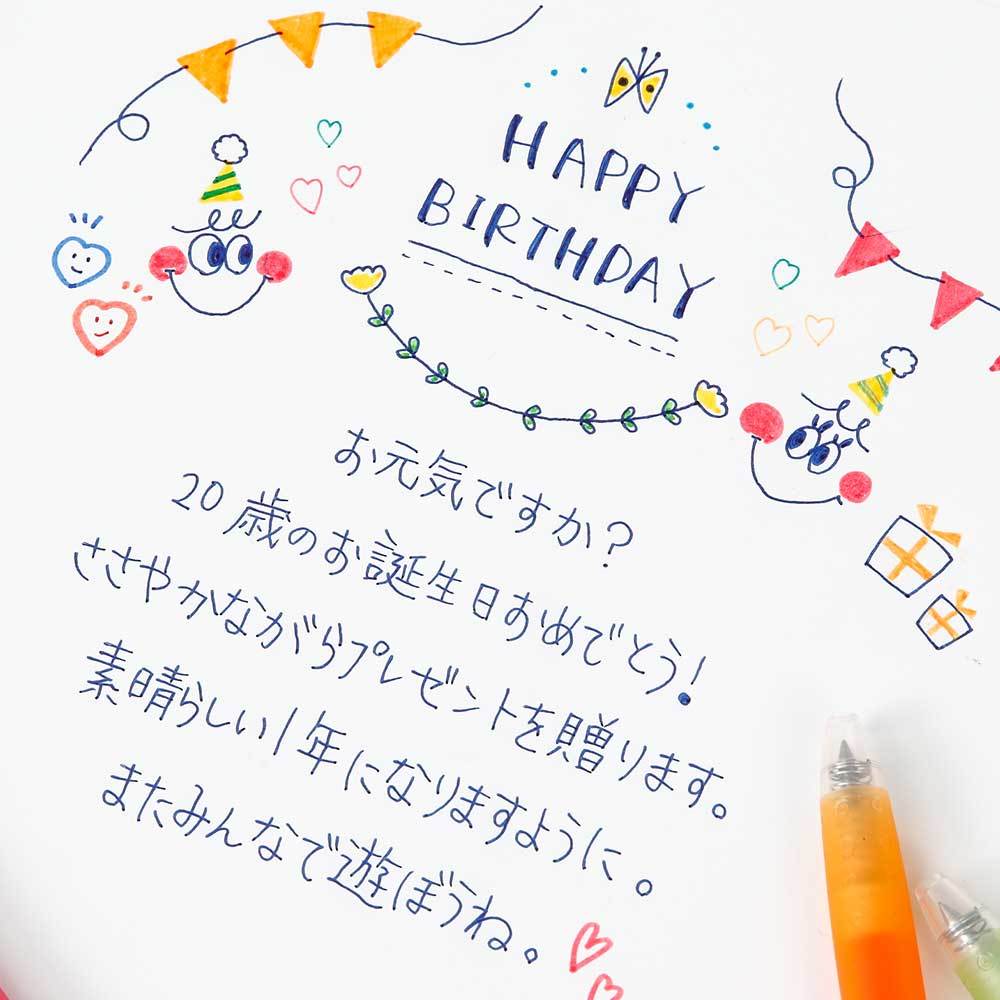 HAPPY
BIRTHDAY
お元気ですか?
20歳のお誕生日おめでとう!
ささやかながらプレゼントを贈ります。
素晴らしい1年になりますように。
またみんなで遊ぼうね。